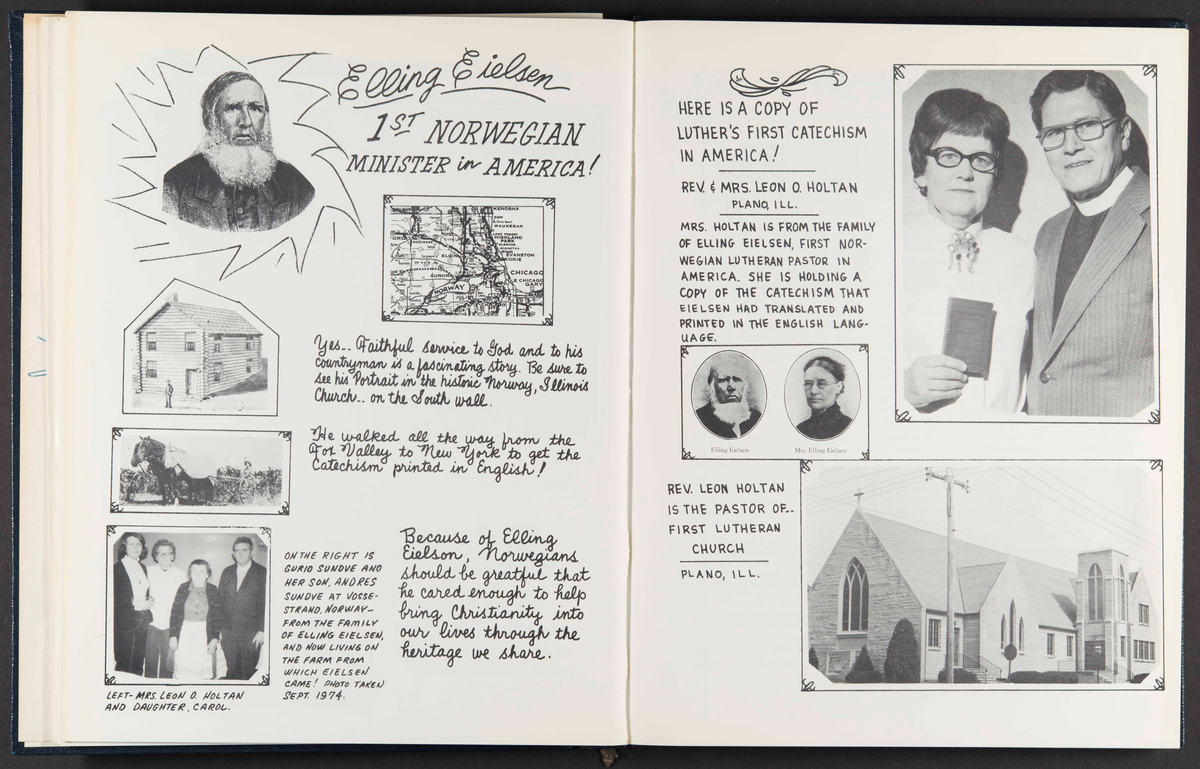 Elling Eielsen
1ST NORWEGIAN
MINISTER in AMERICA!
KENOSHA
WAUKEGAN
HIGHLAND
PARK
EVANSTON
CHICAGO
GARY
AURORA
NORWAY
Yes.. Faithful service to God and to his
countryman is a fascinating story. Be sure to
see his Portrait in the historic Norway, Illinois
Church.. on the South wall.
He walked all the way from the
Fox Valley to New York to get the
Catechism printed in English!
ON THE RIGHT IS
GURID SUNDVE AND
HER SON, ANDRES
SUNDVE AT VOSSE-
STRAND, NORWAY—
FROM THE FAMILY
OF ELLING EIELSEN,
AND NOW LIVING ON
THE FARM FROM
WHICH EIELSEN
CAME! PHOTO TAKEN
SEPT. 1974.
LEFT- MRS. LEON O. HOLTAN
AND DAUGHTER, CAROL.
Because of Elling
Eielson, Norwegians
should be greatful that
he cared enough to help
bring Christianity into
our lives through the
heritage we share.
HERE IS A COPY OF
LUTHER'S FIRST CATECHISM
IN AMERICA!
REV. & MRS. LEON O. HOLTAN
PLANO, ILL.
MRS. HOLTAN IS FROM THE FAMILY
OF ELLING EIELSEN, FIRST NOR-
WEGIAN LUTHERAN PASTOR IN
AMERICA. SHE IS HOLDING A
COPY OF THE CATECHISM THAT
EIELSEN HAD TRANSLATED AND
PRINTED IN THE ENGLISH LANG-
UAGE.
Elling Eielsen
Mrs. Elling Eielsen
REV. LEON HOLTAN
IS THE PASTOR OF..
FIRST LUTHERAN
CHURCH
PLANO, ILL.